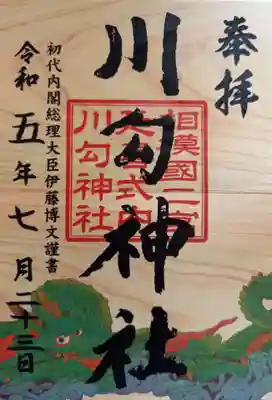 奉拝
川勾神社
相模國二宮
延喜式内
川勾神社
初代内閣総理大臣伊藤博文謹書
令和五年七月二十三日